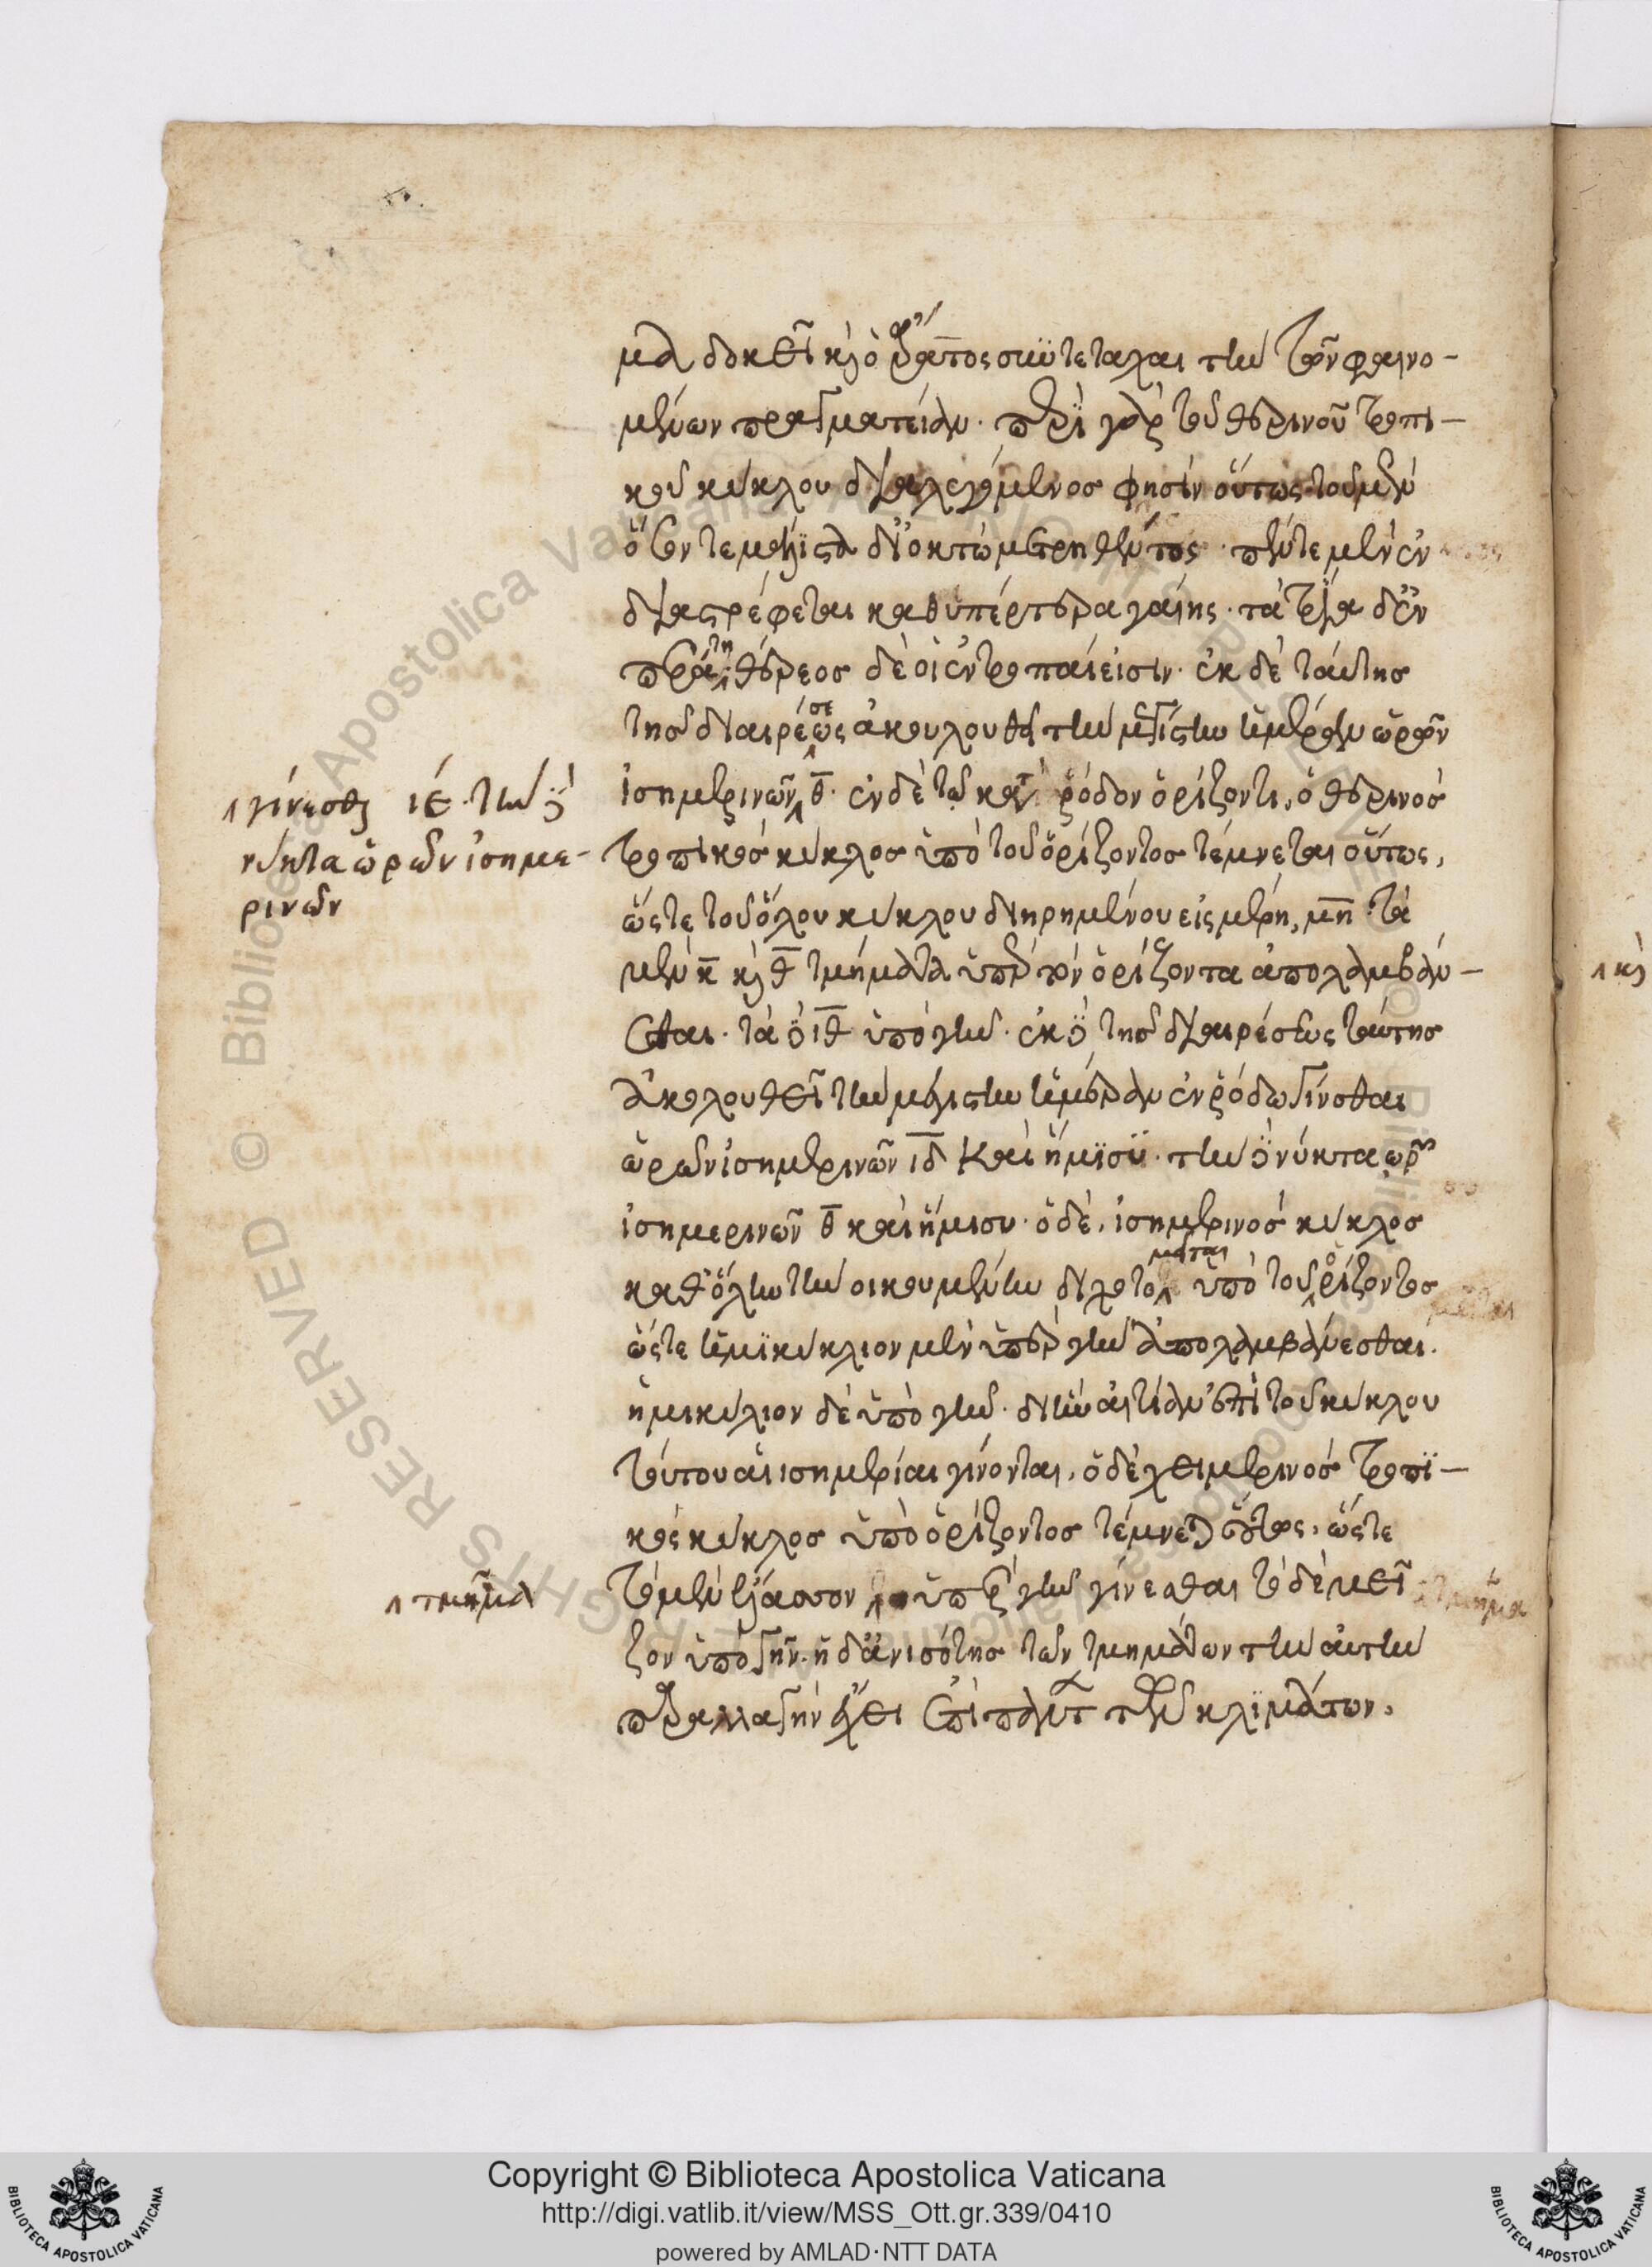 μα δοκεῖ κὶ ὁ ἄρατος συντεταχαι την τῶν φαινο-
μένων πραγματείαν. περὶ γὰρ τοῦ θερινοῦ τροπι-
κοῦ κύκλου διαλεγόμενος φησίν οὕτως. τοῦ μὲν
ὅσον τε μάλιϛα δι' ὀκτὼ μετρηθέντος. πέντε μὲν ἐν
διαϛρέφεται καθ ὑπέρτερα γαίης. τὰ τρία δ' ἐν
περάτη. θέρεος δὲ οἱ ἐν τροπαί εἰσιν. ἐκ δὲ ταύτης
τῆς διαιρέσεως ἀκουλουθεῖ την μεγίϛην ἡμέραν ὡρῶν
ἰσημερινῶν θ. ἐν δὲ τῶ κατὰ ῥόδον ὁρίζοντι, ὁ θερινὸς
γίνεσθαι ιε. την δὲ
νύκτα ὡρῶν ἰσημε-
ρινῶν
τροπικὸς κύκλος ὑπὸ τοῦ ὁρίζοντος τέμνεται οὕτως,
ὥϛτε τοῦ ὅλου κύκλου διηρημένου εἰς μέρη, μη. τὰ
μὲν κ κὶ θ τμήματα ὑπὲρ τὸν ὁρίζοντα ἀπολαμβάν-
εσθαι. τὰ δὲ ιθ ὑπὸ γην. ἐκ δὲ τῆς διαιρέσεως ταύτης
ἀκολουθεῖ την μεγίϛην ἡμέραν ἐν ῥόδω γίνεσθαι
ὡρῶν ἰσημερινῶν ιδ καὶ ἥμισυ. την δὲ νύκτα ὡρῶν
ἰσημερινῶν θ καὶ ἥμισυ. ὁ δὲ, ἰσημερινὸς κύκλος
καθ' ὅλην την οικουμένην διχοτομεῖται ὑπὸ τοῦ ὁρίζοντος
ὥϛτε ἡμικύκλιον μὲν ὑπὲρ γην ἀπολαμβάνεσθαι.
ἡμικύκλιον δὲ ὑπὸ γην. δι' ἣν αἰτίαν ἐπὶ τοῦ κύκλου
τούτου αἱ ισημερίαι γίνονται, ὁ δὲ χειμερινὸς τροπι-
κὸς κύκλος ὑπὸ ὁρίζοντος τέμνεται οὕτως, ὥϛτε
τὸ μὲν ἔλασσον ὑπὲρ γην γίνεσθαι τὸ δὲ μεῖ
τμῆμα
ζον ὑπὸ γῆν. ἡ δ' ἀνισότης τῶν τμημάτων την αὐτην
παραλλαγὴν ἔχει ἐπὶ πάντ τῶν κλιμάτων.
Copyright © Biblioteca Apostolica Vaticana
http://digi.vatlib.it/view/MSS_Ott.gr.339/0410
powered by AMLAD·NTT DATA
BIBLIOTECA APOSTOLICA VATICANA
BIBLIOTECA APOSTOLICA VATICANA